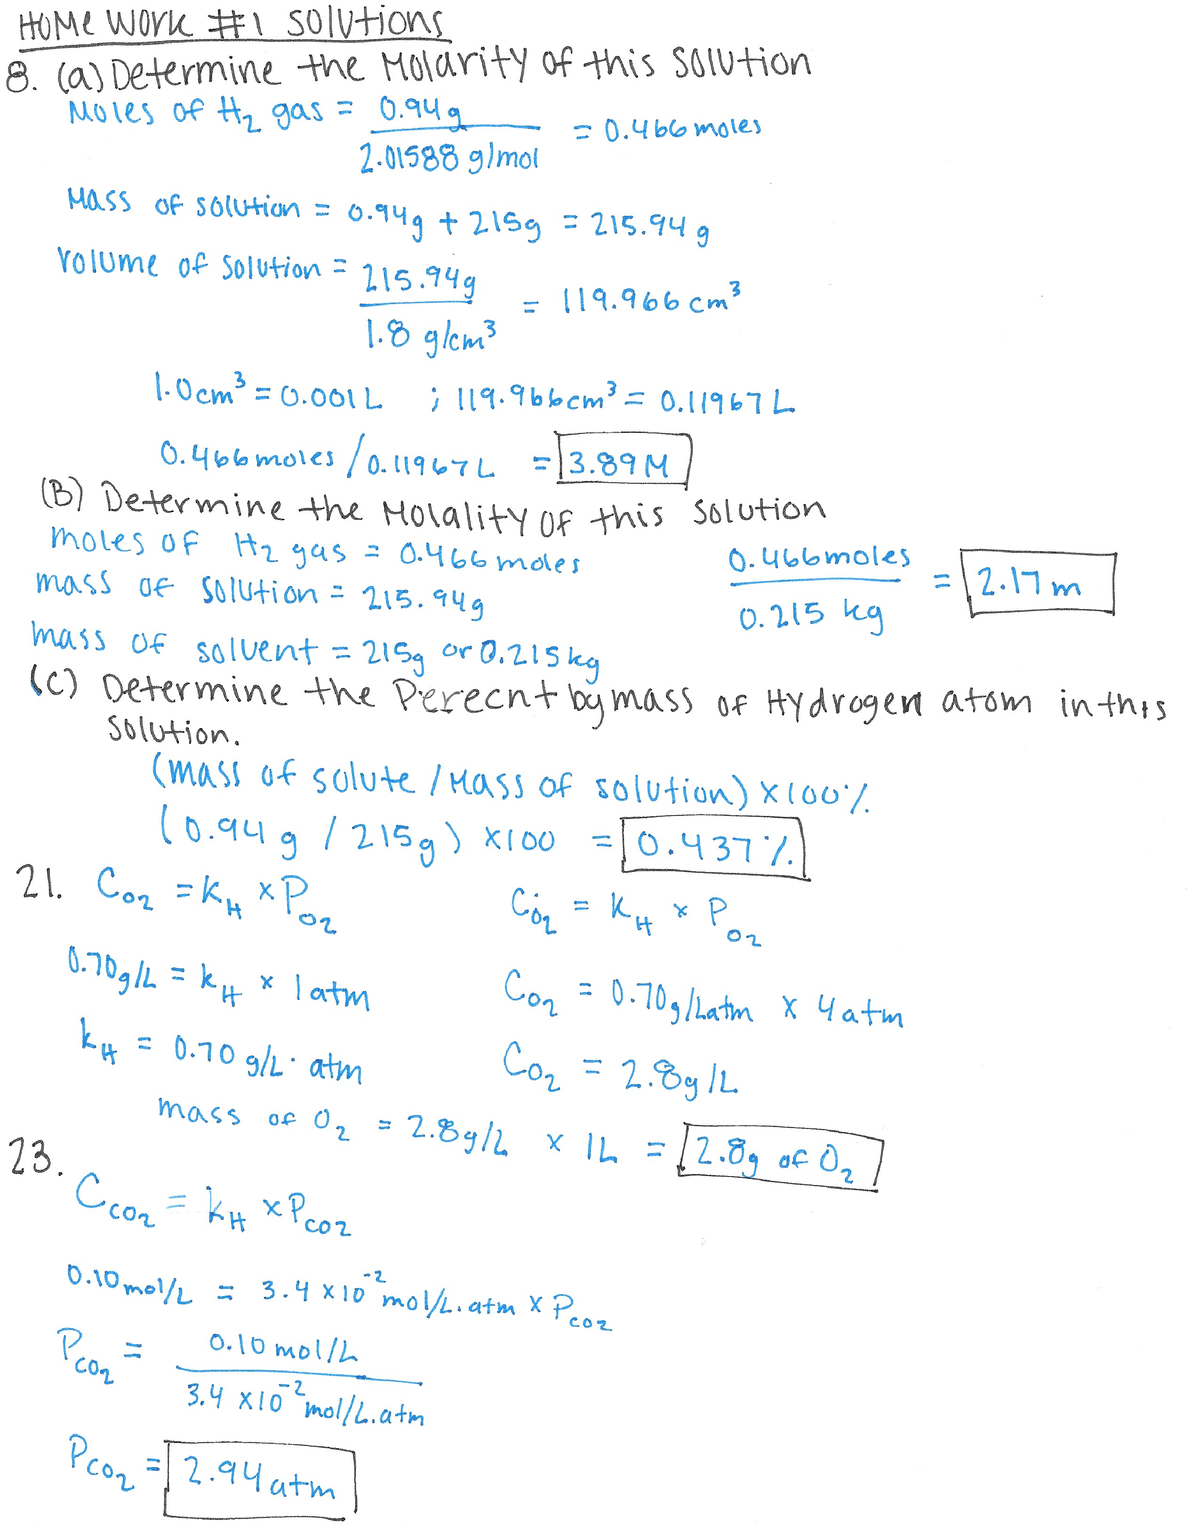 HOMe WORK #1 SOlUtiONS
8. (a) Determine the Molarity of this Solution
Moles of H₂ gas = 0.94g / 2.01588 g/mol = 0.466 moles
Mass of solution = 0.94g + 215g = 215.94 g
Volume of Solution = 215.94g / 1.8 g/cm³ = 119.966 cm³
1.0cm³ = 0.001L ; 119.966cm³ = 0.11967L
0.466 moles / 0.11967L = 3.89M
(B) Determine the Molality of this Solution
moles of H₂ gas = 0.466 moles 0.466 moles / 0.215 kg = 2.17 m
mass of solution = 215.94g
mass of solvent = 215g or 0.215kg
(C) Determine the Perecnt by mass of Hydrogen atom in this
Solution.
(mass of solute / Mass of solution) x100%
(0.94 g / 215g) x100 = 0.437%
21. C_O2 = k_H x P_O2 C_O2 = k_H x P_O2
0.70g/L = k_H x 1atm C_O2 = 0.70g/Latm x 4atm
k_H = 0.70 g/L· atm C_O2 = 2.8g/L
mass of O₂ = 2.8g/L x 1L = 2.8g of O₂
23.
C_CO2 = k_H x P_CO2
0.10 mol/L = 3.4 x10⁻² mol/L.atm x P_CO2
P_CO2 = 0.10 mol/L / 3.4 x10⁻² mol/L.atm
P_CO2 = 2.94 atm